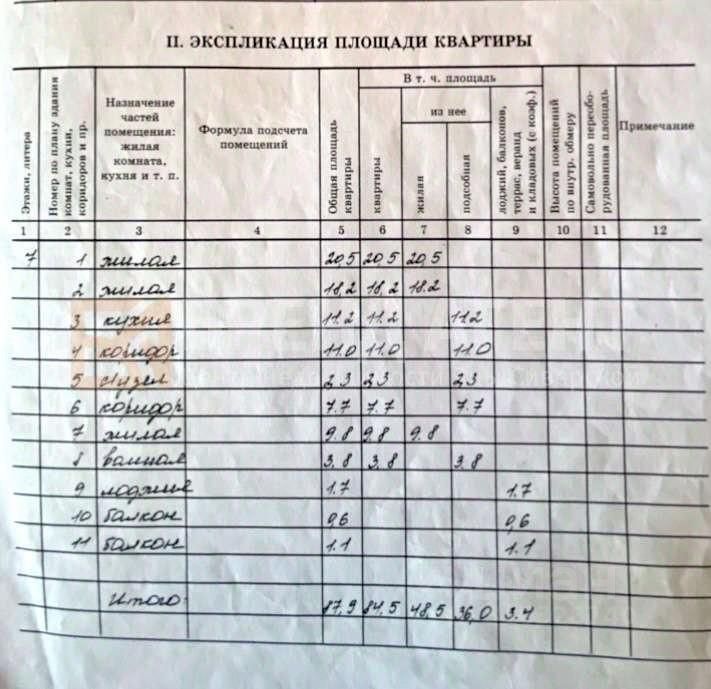 II. ЭКСПЛИКАЦИЯ ПЛОЩАДИ КВАРТИРЫ
Этажи, литера
Номер по плану здания комнат, кухни, коридоров и пр.
Назначение
частей
помещения:
жилая
комната,
кухня и т. п.
Формула подсчета
помещений
Общая площадь
квартиры
В т. ч. площадь
квартиры
из нее
жилая
подсобная
лоджий, балконов,
террас, веранд
и кладовых (с коэф.)
Высота помещений
по внутр. обмеру
Самовольно переобо-
рудованная площадь
Примечание
1 2 3 4 5 6 7 8 9 10 11 12
7 1 жилая 20,5 20,5 20,5
2 жилая 18,2 18,2 18.2
3 кухня 11.2 11.2 11.2
4 коридор 11.0 11.0 11.0
5 с/узел 2.3 2.3 2.3
6 коридор 7.7 7.7 7.7
7 жилая 9.8 9.8 9.8
8 ванная 3.8 3.8 3.8
9 лоджия 1.7 1.7
10 балкон 0,6 0,6
11 балкон 1.1 1.1
Итого: 87,9 84,5 48,5 36,0 3.4